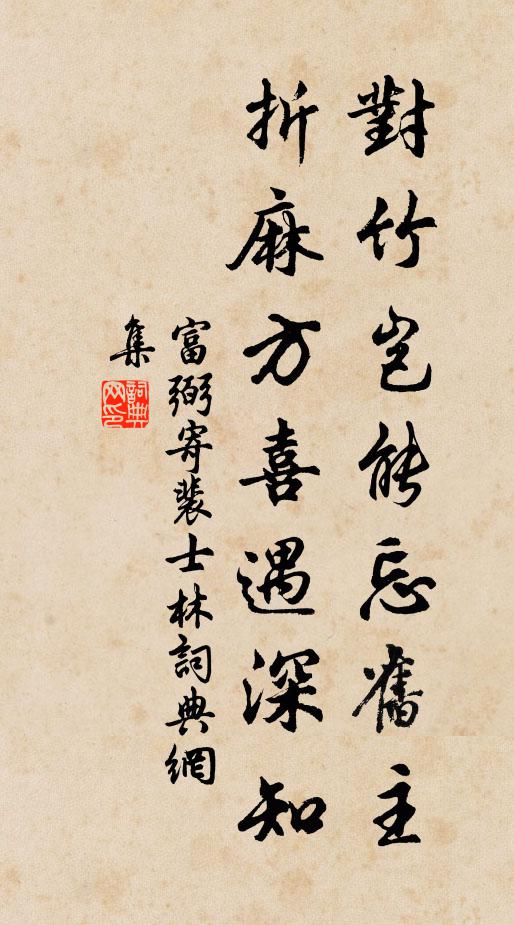 對竹豈能忘舊主
折麻方喜遇深知
富弼寄裴士林詞典網
集
詞典網印